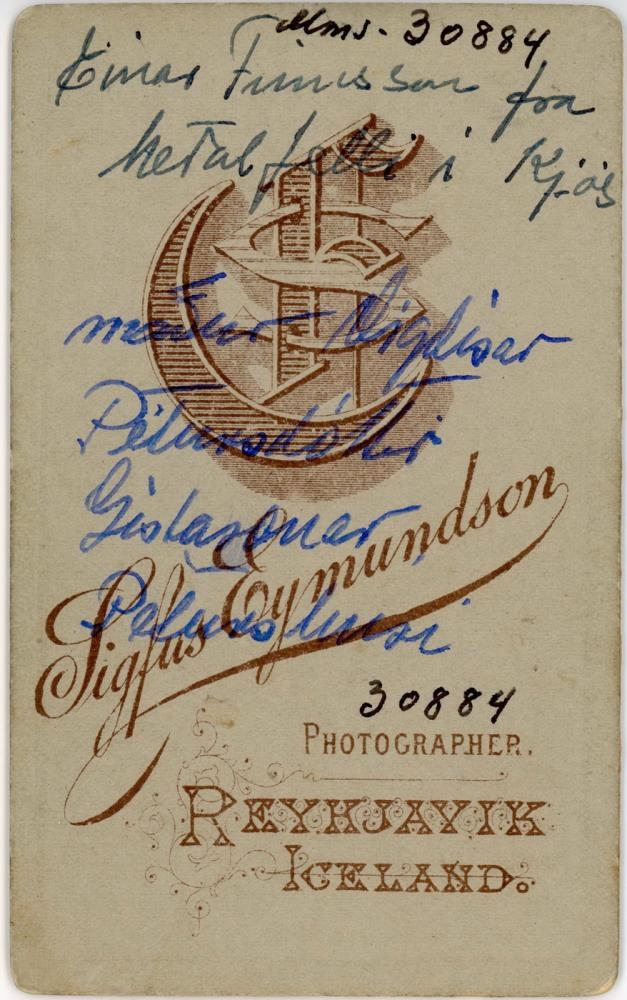 Mms. 30884
Einar Finnsson frá
Meðalfelli í Kjós
maður Sigdísar
Pétursdóttir
Gíslasonar
Sigfus Eymundson
30884
PHOTOGRAPHER.
REYKJAVIK
ICELAND.